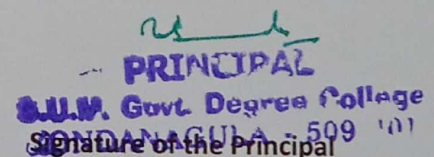 PRINCIPAL
Govt. Degree College
KONDANAGULA - 509
Signature of the Principal